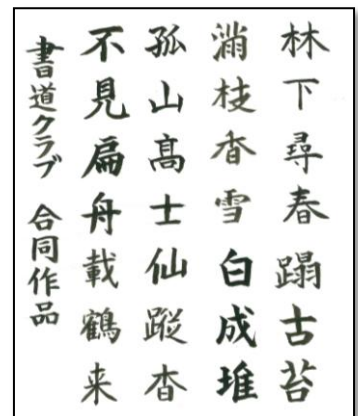 林下尋春蹋古苔
滿枝香雪白成堆
孤山髙士仙蹤杳
不見扁舟載鶴来
書道クラブ 合同作品